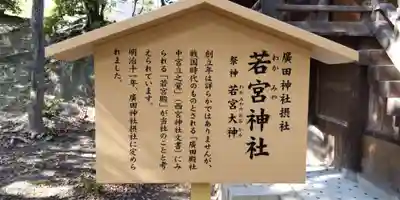 廣田神社摂社
若宮神社
わか みや
祭神 若宮大神
わかみやのおおかみ
創立年は詳らかではありませんが、
戦国時代のものとされる「廣田殿社
中宮立之覚」（西宮神社文書）にみ
られる「若宮殿」が当社のことと考
えられています。
明治十一年、廣田神社摂社に定めら
れました。